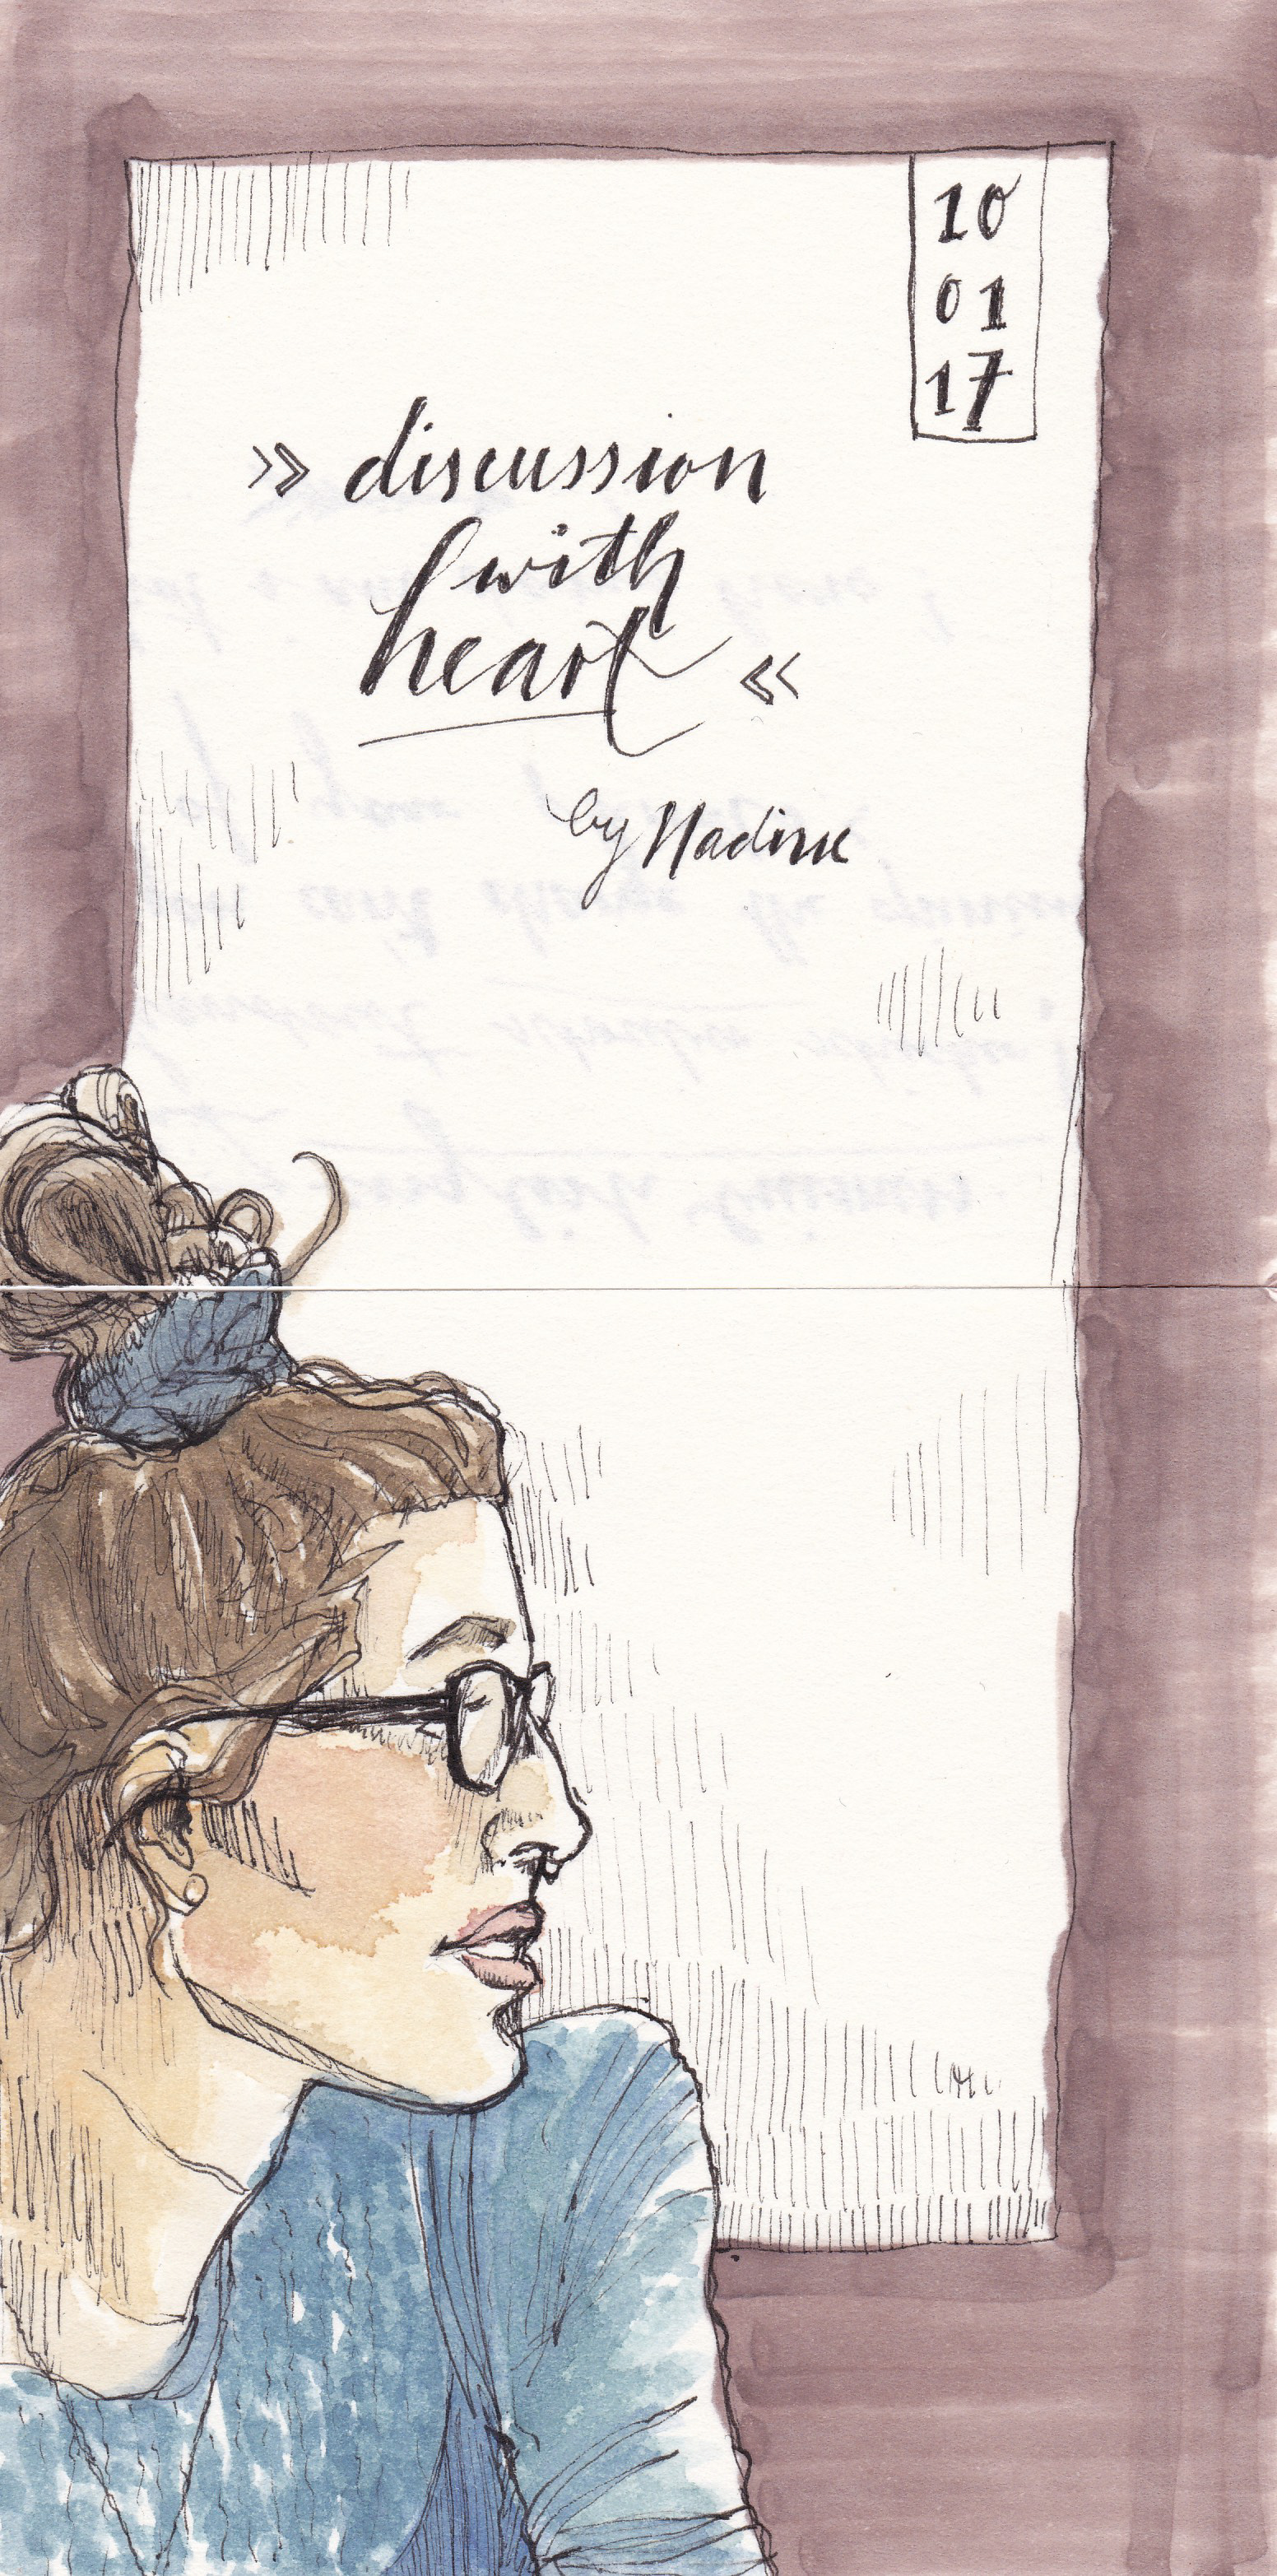 10
01
17
» discussion
with
heart «
by Nadine